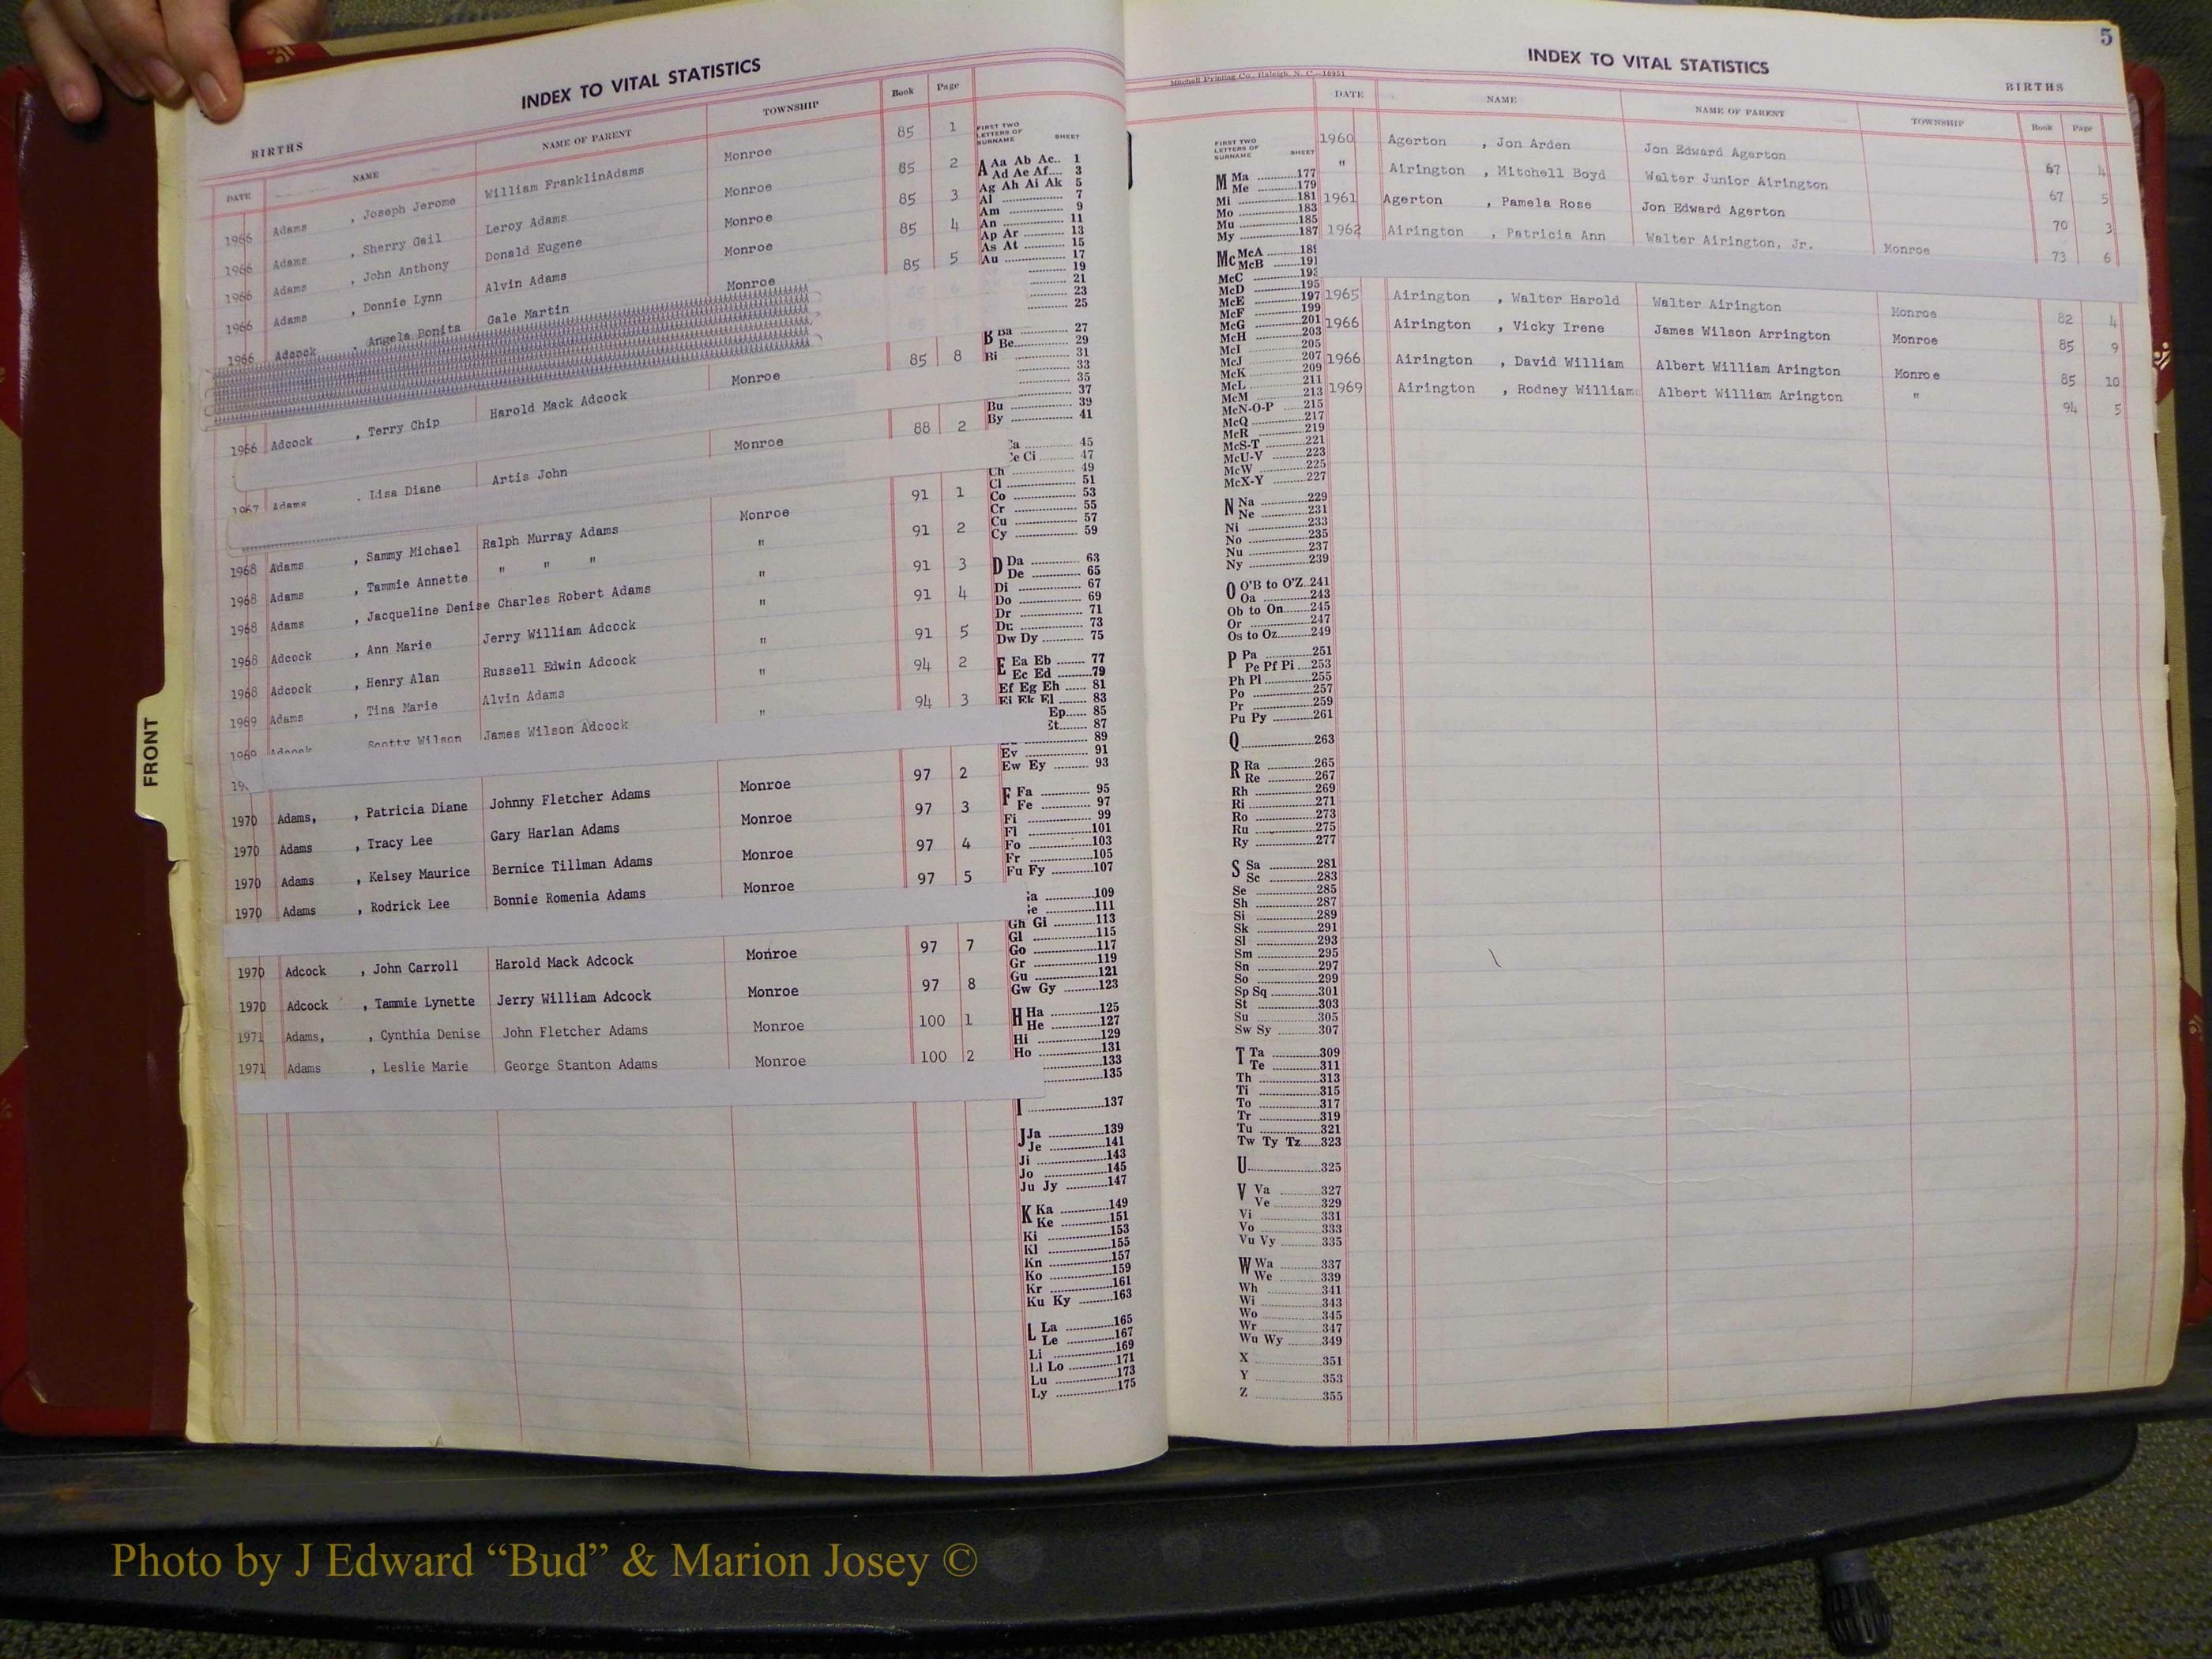 INDEX TO VITAL STATISTICS
BIRTHS
DATE NAME NAME OF PARENT TOWNSHIP Book Page
1966 Adams , Joseph Jerome William FranklinAdams Monroe 85 1
1966 Adams , Sherry Gail Leroy Adams Monroe 85 2
1966 Adams , John Anthony Donald Eugene Monroe 85 3
1966 Adams , Donnie Lynn Alvin Adams Monroe 85 4
1966 Adcock , Angela Bonita Gale Martin Monroe 85 5
1966 Adcock , Terry Chip Harold Mack Adcock Monroe 85 8
1967 Adams . Lisa Diane Artis John Monroe 88 2
1968 Adams , Sammy Michael Ralph Murray Adams Monroe 91 1
1968 Adams , Tammie Annette " " " " 91 2
1968 Adams , Jacqueline Denise Charles Robert Adams " 91 3
1968 Adcock , Ann Marie Jerry William Adcock " 91 4
1968 Adcock , Henry Alan Russell Edwin Adcock " 91 5
1969 Adams , Tina Marie Alvin Adams " 94 2
1969 Adcock Scotty Wilson James Wilson Adcock " 94 3
19
1970 Adams, , Patricia Diane Johnny Fletcher Adams Monroe 97 2
1970 Adams , Tracy Lee Gary Harlan Adams Monroe 97 3
1970 Adams , Kelsey Maurice Bernice Tillman Adams Monroe 97 4
1970 Adams , Rodrick Lee Bonnie Romenia Adams Monroe 97 5
1970 Adcock , John Carroll Harold Mack Adcock Monroe 97 7
1970 Adcock , Tammie Lynette Jerry William Adcock Monroe 97 8
1971 Adams, , Cynthia Denise John Fletcher Adams Monroe 100 1
1971 Adams , Leslie Marie George Stanton Adams Monroe 100 2
FIRST TWO
LETTERS OF
SURNAME SHEET
A Aa Ab Ac.. 1
Ad Ae Af.... 3
Ag Ah Ai Ak 5
Al 7
Am 9
An 11
Ap Ar 13
As At 15
Au 17
19
21
23
25
B Ba 27
Be 29
Bi 31
33
35
37
Bu 39
By 41
Ca 45
Ce Ci 47
Ch 49
Cl 51
Co 53
Cr 55
Cu 57
Cy 59
D Da 63
De 65
Di 67
Do 69
Dr 71
Du 73
Dw Dy 75
E Ea Eb 77
Ec Ed 79
Ef Eg Eh 81
Ei Ek El 83
Ep 85
Et 87
89
Ev 91
Ew Ey 93
F Fa 95
Fe 97
Fi 99
Fl 101
Fo 103
Fr 105
Fu Fy 107
Ga 109
Ge 111
Gh Gi 113
Gl 115
Go 117
Gr 119
Gu 121
Gw Gy 123
H Ha 125
He 127
Hi 129
Ho 131
133
135
I 137
J Ja 139
Je 141
Ji 143
Jo 145
Ju Jy 147
K Ka 149
Ke 151
Ki 153
Kl 155
Kn 157
Ko 159
Kr 161
Ku Ky 163
L La 165
Le 167
Li 169
Ll Lo 171
Lu 173
Ly 175
FRONT
5
INDEX TO VITAL STATISTICS
Mitchell Printing Co., Raleigh, N. C.—16951
BIRTHS
DATE NAME NAME OF PARENT TOWNSHIP Book Page
1960 Agerton , Jon Arden Jon Edward Agerton 67 4
" Airington , Mitchell Boyd Walter Junior Airington 67 5
1961 Agerton , Pamela Rose Jon Edward Agerton 70 3
1962 Airington , Patricia Ann Walter Airington, Jr. Monroe 73 6
1965 Airington , Walter Harold Walter Airington Monroe 82 4
1966 Airington , Vicky Irene James Wilson Arrington Monroe 85 9
1966 Airington , David William Albert William Arington Monroe 85 10
1969 Airington , Rodney William Albert William Arington " 94 5
FIRST TWO
LETTERS OF
SURNAME SHEET
M Ma 177
Me 179
Mi 181
Mo 183
Mu 185
My 187
Mc McA 189
McB 191
McC 193
McD 195
McE 197
McF 199
McG 201
McH 203
McI 205
McJ 207
McK 209
McL 211
McM 213
McN-O-P 215
McQ 217
McR 219
McS-T 221
McU-V 223
McW 225
McX-Y 227
N Na 229
Ne 231
Ni 233
No 235
Nu 237
Ny 239
O O'B to O'Z 241
Oa 243
Ob to On 245
Or 247
Os to Oz 249
P Pa 251
Pe Pf Pi 253
Ph Pl 255
Po 257
Pr 259
Pu Py 261
Q 263
R Ra 265
Re 267
Rh 269
Ri 271
Ro 273
Ru 275
Ry 277
S Sa 281
Sc 283
Se 285
Sh 287
Si 289
Sk 291
Sl 293
Sm 295
Sn 297
So 299
Sp Sq 301
St 303
Su 305
Sw Sy 307
T Ta 309
Te 311
Th 313
Ti 315
To 317
Tr 319
Tu 321
Tw Ty Tz 323
U 325
V Va 327
Ve 329
Vi 331
Vo 333
Vu Vy 335
W Wa 337
We 339
Wh 341
Wi 343
Wo 345
Wr 347
Wu Wy 349
X 351
Y 353
Z 355
Photo by J Edward “Bud” & Marion Josey ©